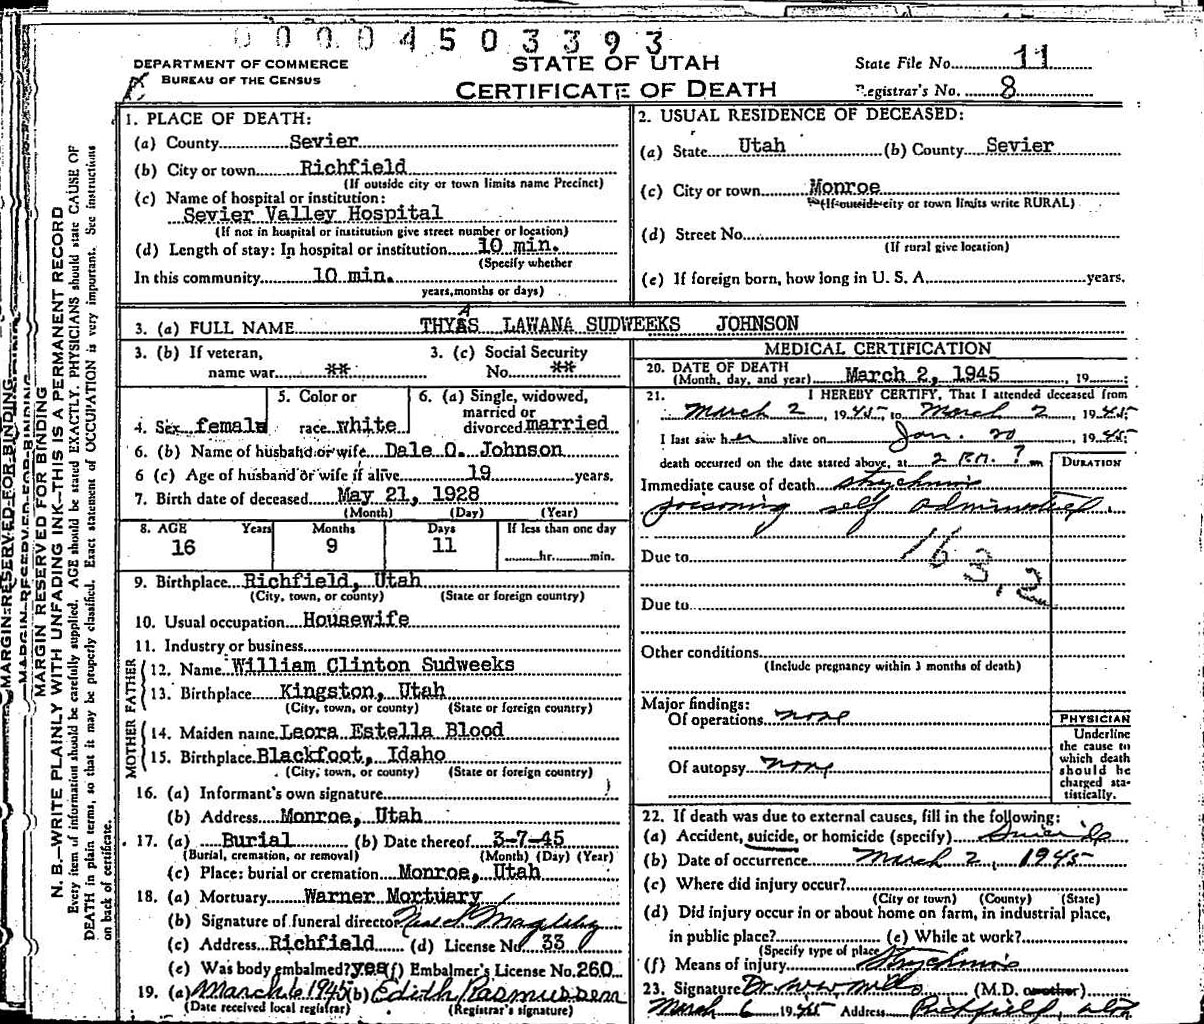 00004503393
DEPARTMENT OF COMMERCE
BUREAU OF THE CENSUS
STATE OF UTAH
CERTIFICATE OF DEATH
State File No. 11
Registrar's No. 8
MARGIN RESERVED FOR BINDING
MARGIN RESERVED FOR BINDING
MARGIN RESERVED FOR BINDING
N. B.—WRITE PLAINLY WITH UNFADING INK—THIS IS A PERMANENT RECORD
Every item of information should be carefully supplied. AGE should be stated EXACTLY. PHYSICIANS should state CAUSE OF
DEATH in plain terms, so that it may be properly classified. Exact statement of OCCUPATION is very important. See instructions
on back of certificate.
1. PLACE OF DEATH:
(a) County Sevier
(b) City or town Richfield
(If outside city or town limits name Precinct)
(c) Name of hospital or institution:
Sevier Valley Hospital
(If not in hospital or institution give street number or location)
(d) Length of stay: In hospital or institution 10 min.
(Specify whether
In this community 10 min.
years, months or days)
2. USUAL RESIDENCE OF DECEASED:
(a) State Utah (b) County Sevier
(c) City or town Monroe
(If outside city or town limits write RURAL)
(d) Street No.
(If rural give location)
(e) If foreign born, how long in U. S. A. years.
3. (a) FULL NAME THYAS LAWANA SUDWEEKS JOHNSON
A
3. (b) If veteran,
name war **
3. (c) Social Security
No. **
4. Sex female
5. Color or
race white
6. (a) Single, widowed,
married or
divorced married
6. (b) Name of husband or wife Dale O. Johnson
6 (c) Age of husband or wife if alive 19 years.
7. Birth date of deceased May 21, 1928
(Month) (Day) (Year)
8. AGE Years Months Days If less than one day
16 9 11 hr. min.
9. Birthplace Richfield, Utah
(City, town, or county) (State or foreign country)
10. Usual occupation Housewife
11. Industry or business
FATHER
12. Name William Clinton Sudweeks
13. Birthplace Kingston, Utah
(City, town, or county) (State or foreign country)
MOTHER
14. Maiden name Leora Estella Blood
15. Birthplace Blackfoot, Idaho
(City, town, or county) (State or foreign country)
16. (a) Informant's own signature
(b) Address Monroe, Utah
17. (a) Burial (b) Date thereof 3-7-45
(Burial, cremation, or removal) (Month) (Day) (Year)
(c) Place: burial or cremation Monroe, Utah
18. (a) Mortuary Warner Mortuary
(b) Signature of funeral director
(c) Address Richfield (d) License No. 33
(e) Was body embalmed? yes (f) Embalmer's License No. 260
19. (a) March 6 1945 (b) Edith Rasmussen
(Date received local registrar) (Registrar's signature)
MEDICAL CERTIFICATION
20. DATE OF DEATH
(Month, day, and year) March 2, 1945, 19
21. I HEREBY CERTIFY, That I attended deceased from
March 2, 1945 to March 2, 1945
I last saw her alive on Jan. 20, 1945
death occurred on the date stated above, at 2 P.M. ? m
DURATION
Immediate cause of death strychnine
poisoning self administered.
Due to
163.2
Due to
Other conditions
(Include pregnancy within 3 months of death)
Major findings:
Of operations none
Of autopsy none
PHYSICIAN
Underline
the cause to
which death
should be
charged sta-
tistically.
22. If death was due to external causes, fill in the following:
(a) Accident, suicide, or homicide (specify) Suicide
(b) Date of occurrence March 2, 1945
(c) Where did injury occur?
(City or town) (County) (State)
(d) Did injury occur in or about home on farm, in industrial place,
in public place? (e) While at work?
(Specify type of place)
(f) Means of injury Strychnine
23. Signature Dr. W W Mills (M.D. or other)
March 6 1945 Address Richfield, Utah